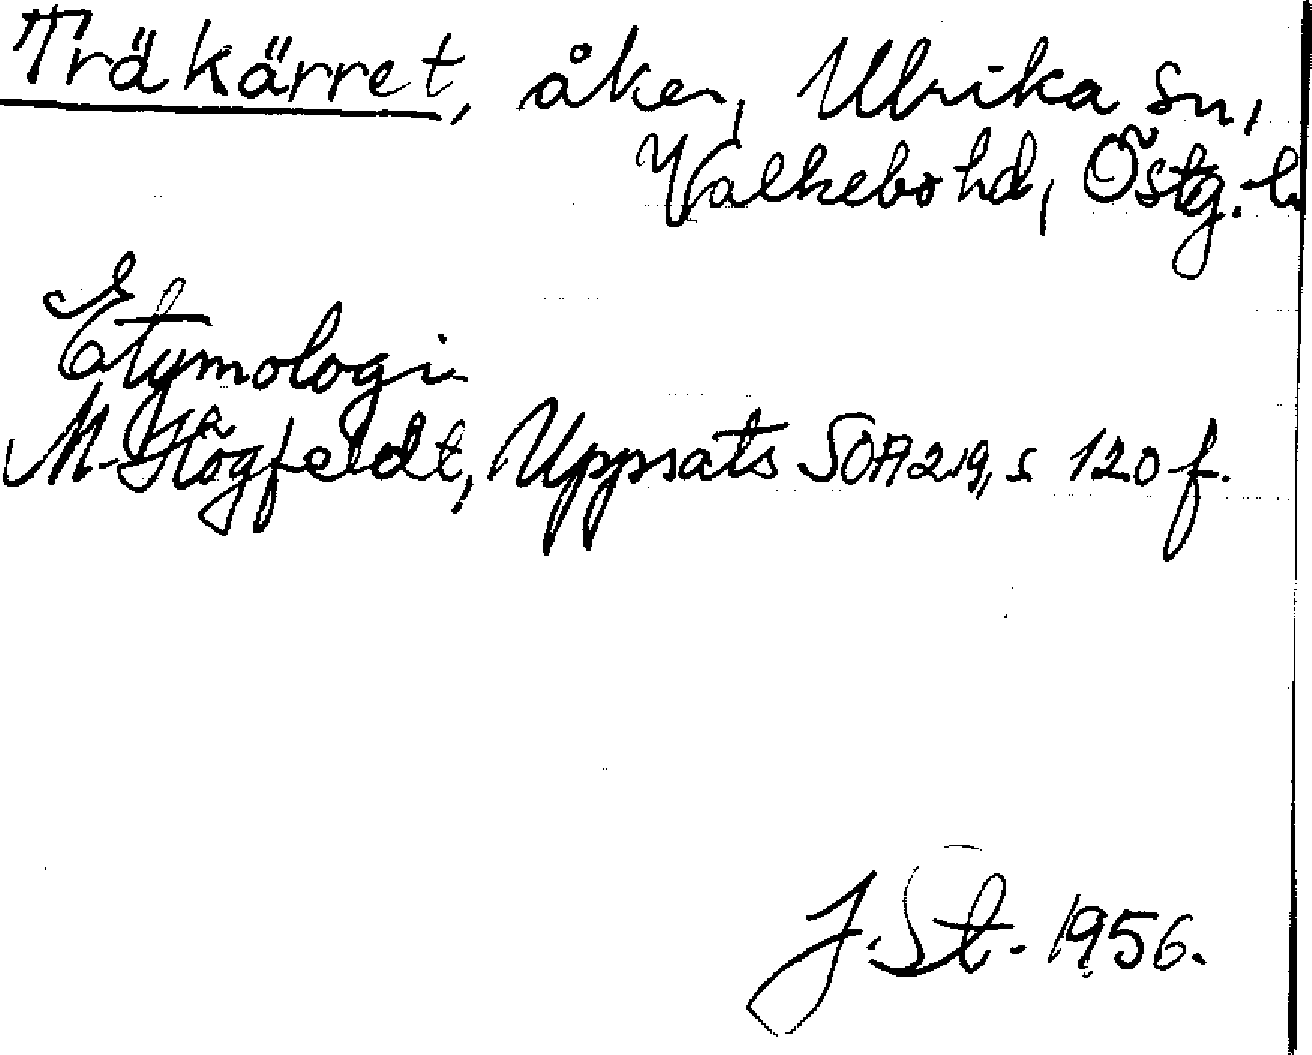 Träkärret, åker, Ulrika sn,
Valkebo hd, Östg. l.
Etymologi
M. Högfeldt, Uppsats SOA 219, s 120 f.
J. St. 1956.